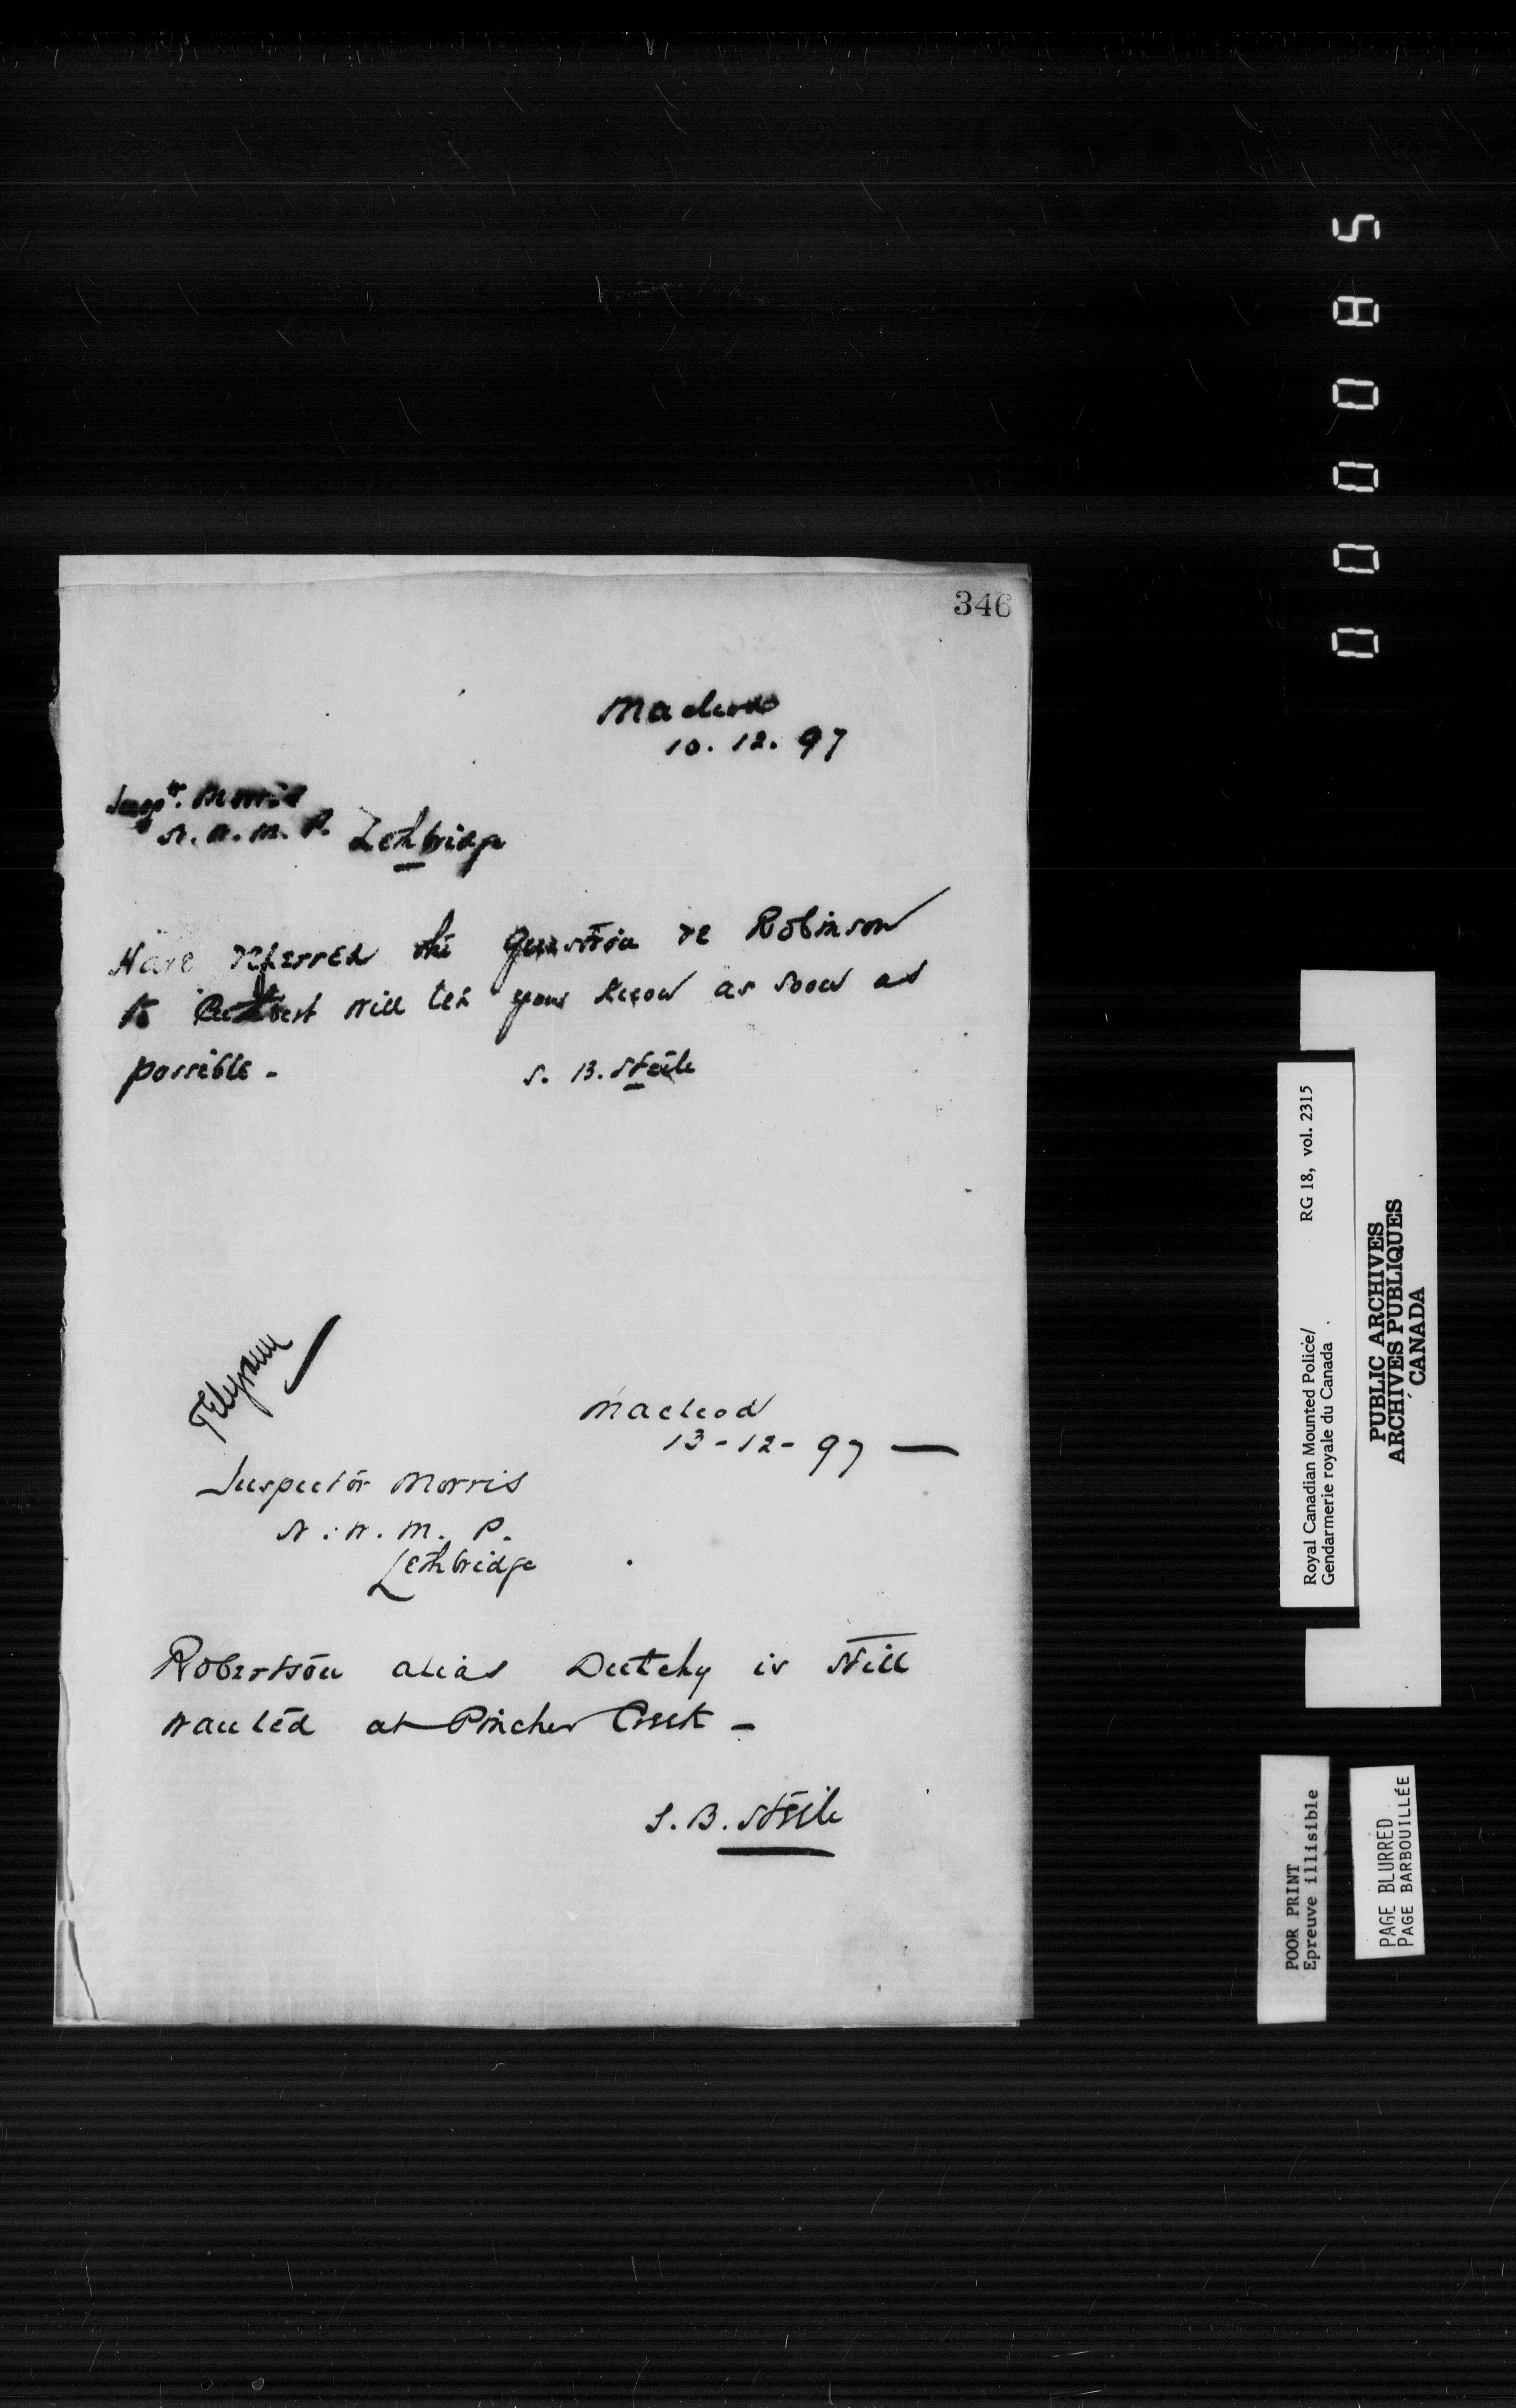 346
Macleod
10. 12. 97
Inspr. Morris
N. W. M. P. Lethbridge
Have referred the question re Robinson
to will let you know as soon as
possible -
S. B. Steele
Telegram
Macleod
13-12-97 —
Inspector Morris
N. W. M. P.
Lethbridge
Robertson alias Dutchy is still
wanted at Pincher Creek -
S. B. Steele
000085
Royal Canadian Mounted Police/ RG 18, vol. 2315
Gendarmerie royale du Canada
PUBLIC ARCHIVES
ARCHIVES PUBLIQUES
CANADA
POOR PRINT
Epreuve illisible
PAGE BLURRED
PAGE BARBOUILLÉE